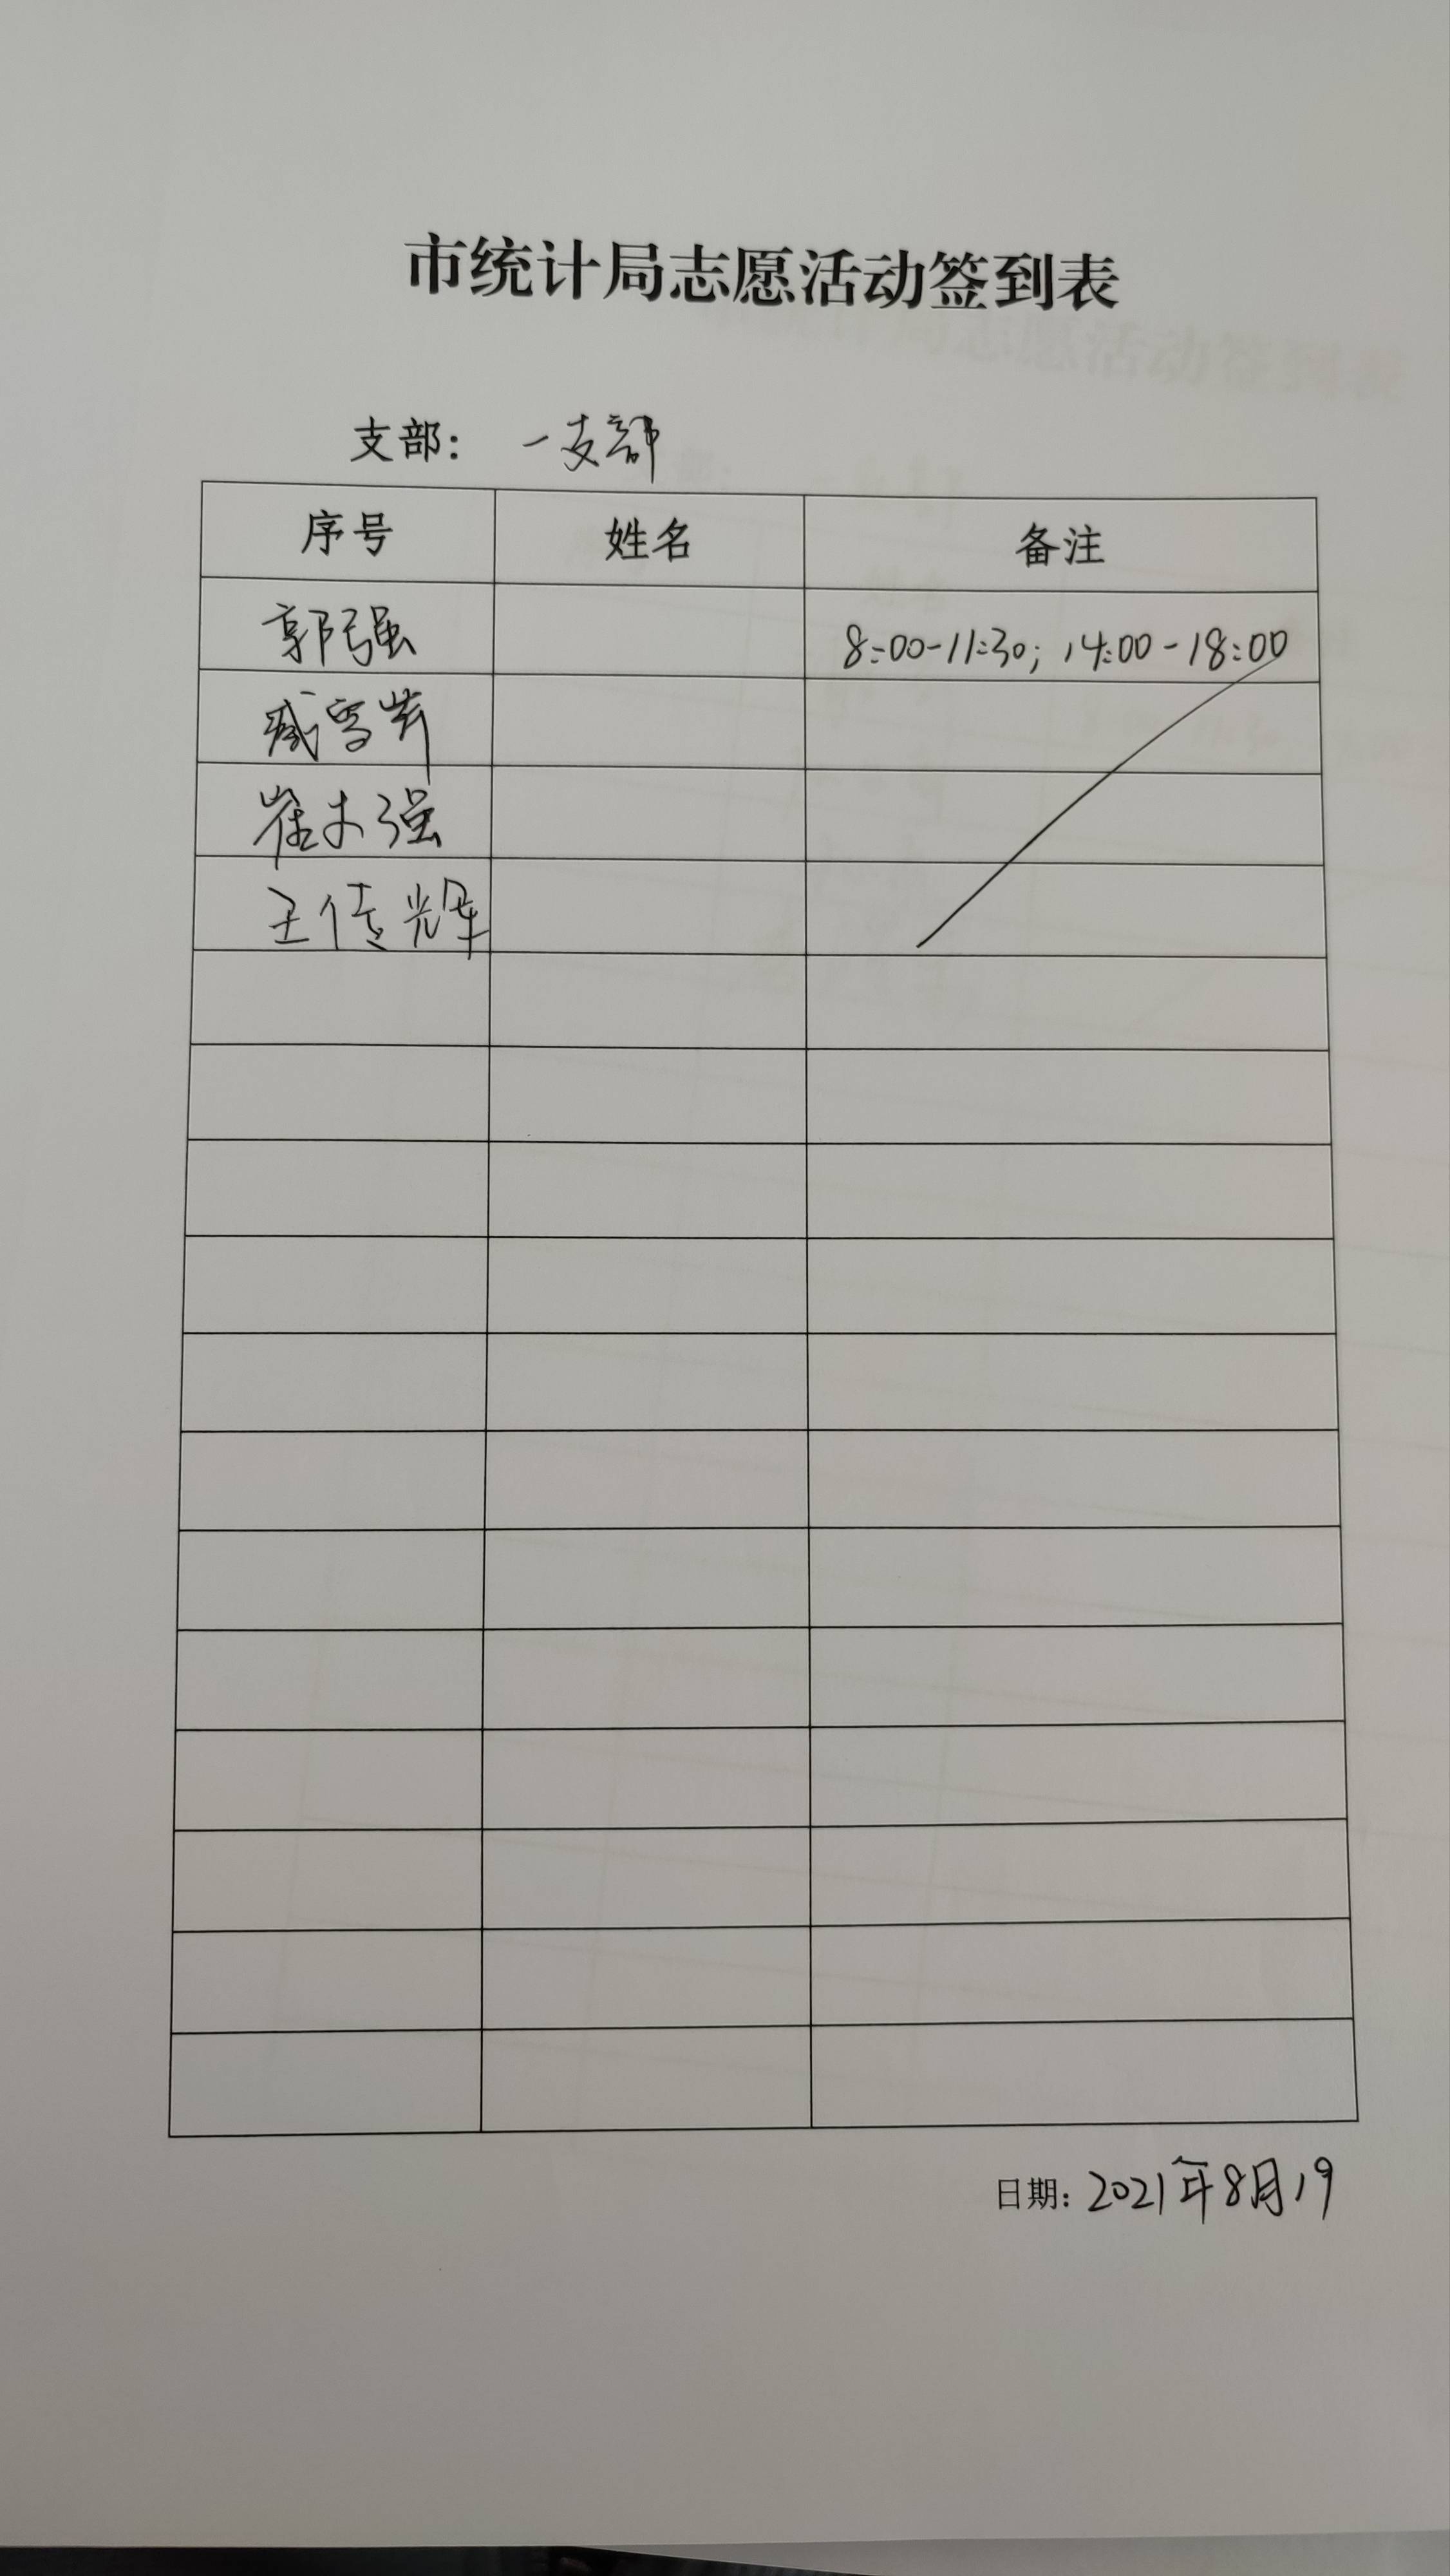 市统计局志愿活动签到表
支部： 一支部
序号 姓名 备注
郭强 8:00-11:30; 14:00-18:00
臧雪
崔木强
王传辉
日期：2021年8月19